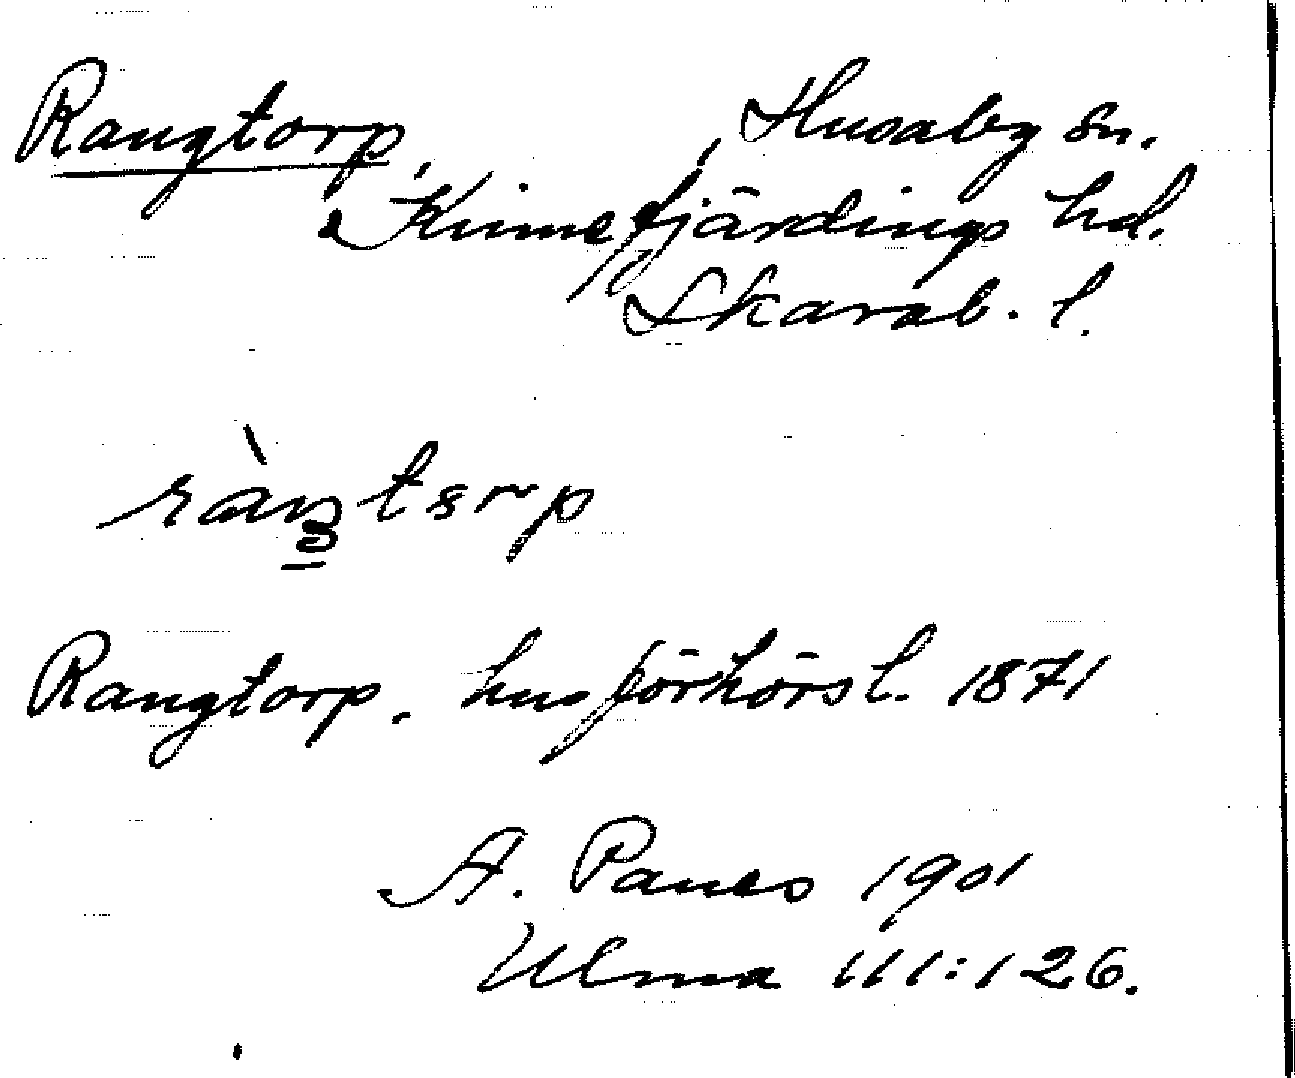 Rangtorp, Husaby sn.
Kinnefjärdings hd.
Skarab. l.
Rangtorp. husförhörsl. 1871
A. Panes 1901
Ulma 111:126.